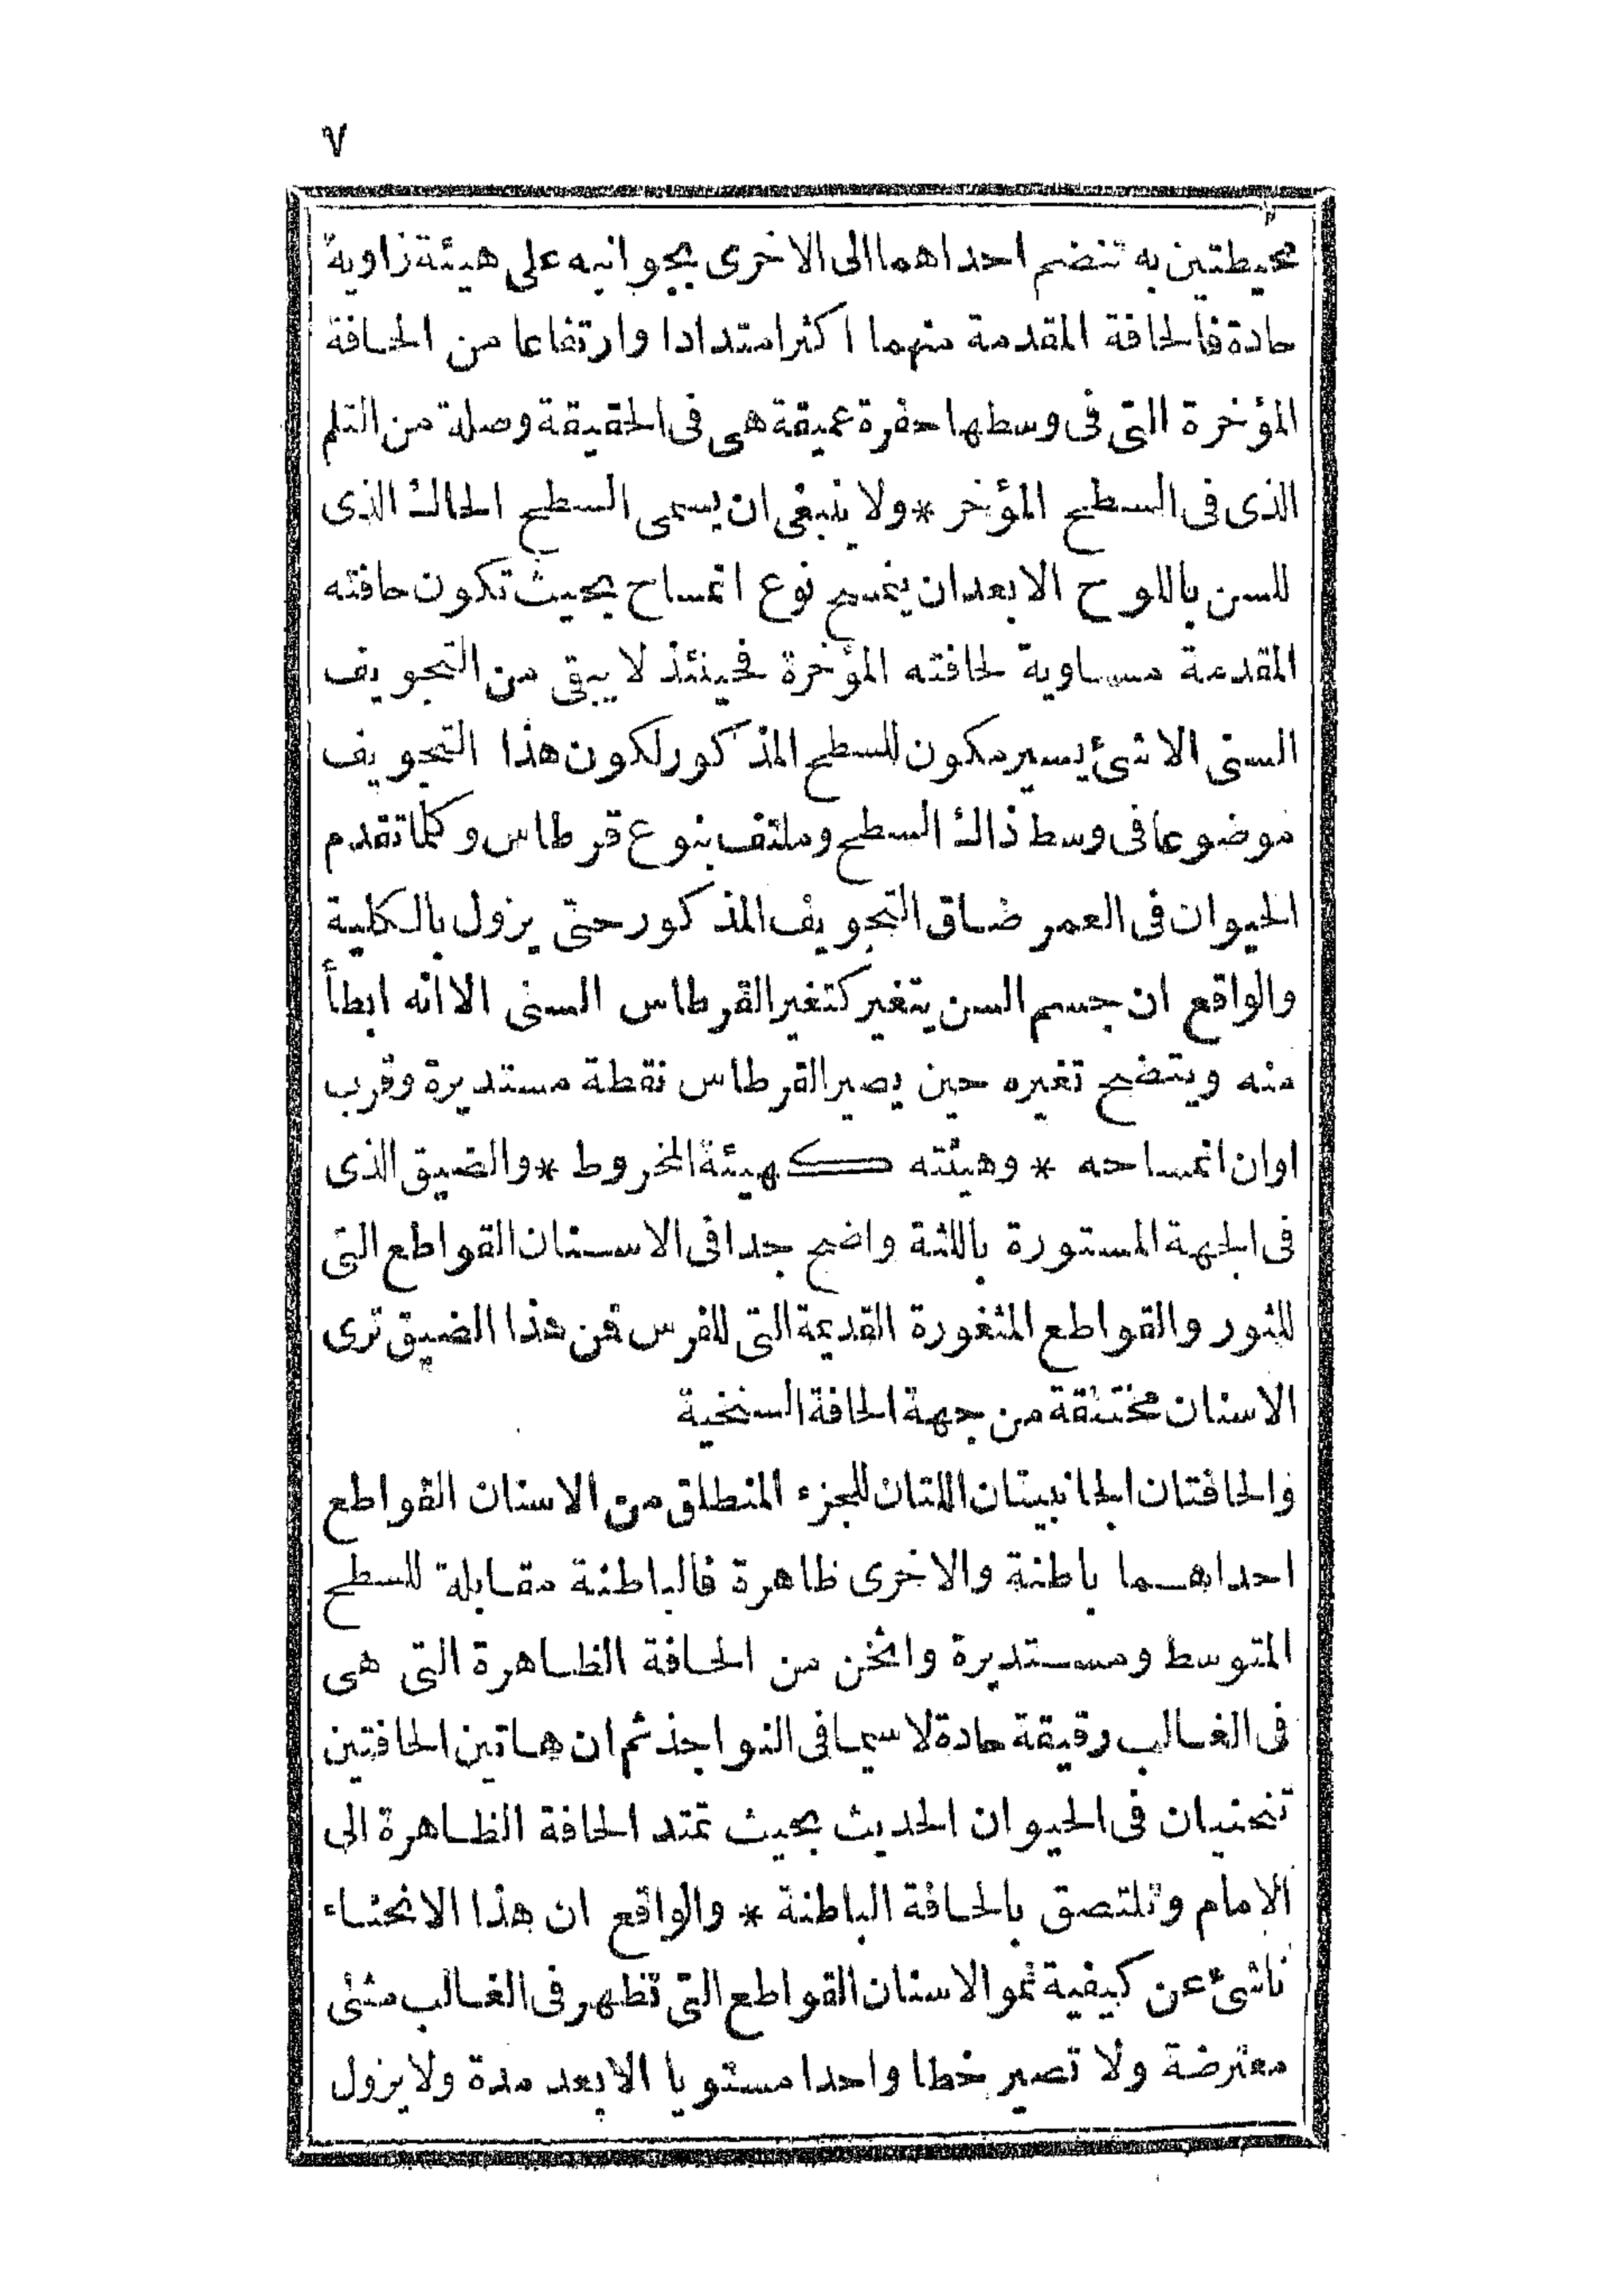 ٧
محيطتين به تنضم احداهما الى الاخرى بجوانبه على هيئة زاوية
حادة فالحافة المقدمة منهما اكثر امتدادا وارتفاعا من الحافة
المؤخرة التى فى وسطها حفرة عميقة هى فى الحقيقة وصلة من التلم
الذى فى السطح المؤخر * ولا ينبغى ان يسمى السطح الحاك الذى
للسن باللوح الا بعد ان ينمسح نوع انمساح بحيث تكون حافته
المقدمة مساوية لحافته المؤخرة فحينئذ لا يبقى من التجويف
السنى الا شئ يسير مكون للسطح المذكور لكون هذا التجويف
موضوعا فى وسط ذاك السطح وملتف بنوع قرطاس وكلما تقدم
الحيوان فى العمر ضاق التجويف المذكور حتى يزول بالكلية
والواقع ان جسم السن يتغير كتغير القرطاس السنى الا انه ابطأ
منه ويتضح تغيره حين يصير القرطاس نقطة مستديرة وقرب
اوان انمساحه * وهيئته كهيئة المخروط * والضيق الذى
فى الجهة المستورة باللثة واضح جدا فى الاسنان القواطع التى
للثور والقواطع المثغورة القديمة التى للفرس فمن هذا الضيق ترى
الاسنان مختنقة من جهة الحافة السنخية
والحافتان الجانبيتان اللتان للجزء المنطلق من الاسنان القواطع
احداهما باطنة والاخرى ظاهرة فالباطنة مقابلة للسطح
المتوسط ومستديرة واثخن من الحافة الظاهرة التى هى
فى الغالب رقيقة حادة لا سيما فى النواجذ ثم ان هاتين الحافتين
تنحنيان فى الحيوان الحديث بحيث تمتد الحافة الظاهرة الى
الامام وتلتصق بالحافة الباطنة * والواقع ان هذا الانحناء
ناشئ عن كيفية نمو الاسنان القواطع التى تظهر فى الغالب مثنى
معترضة ولا تصير خطا واحدا مستويا الا بعد مدة ولا يزول